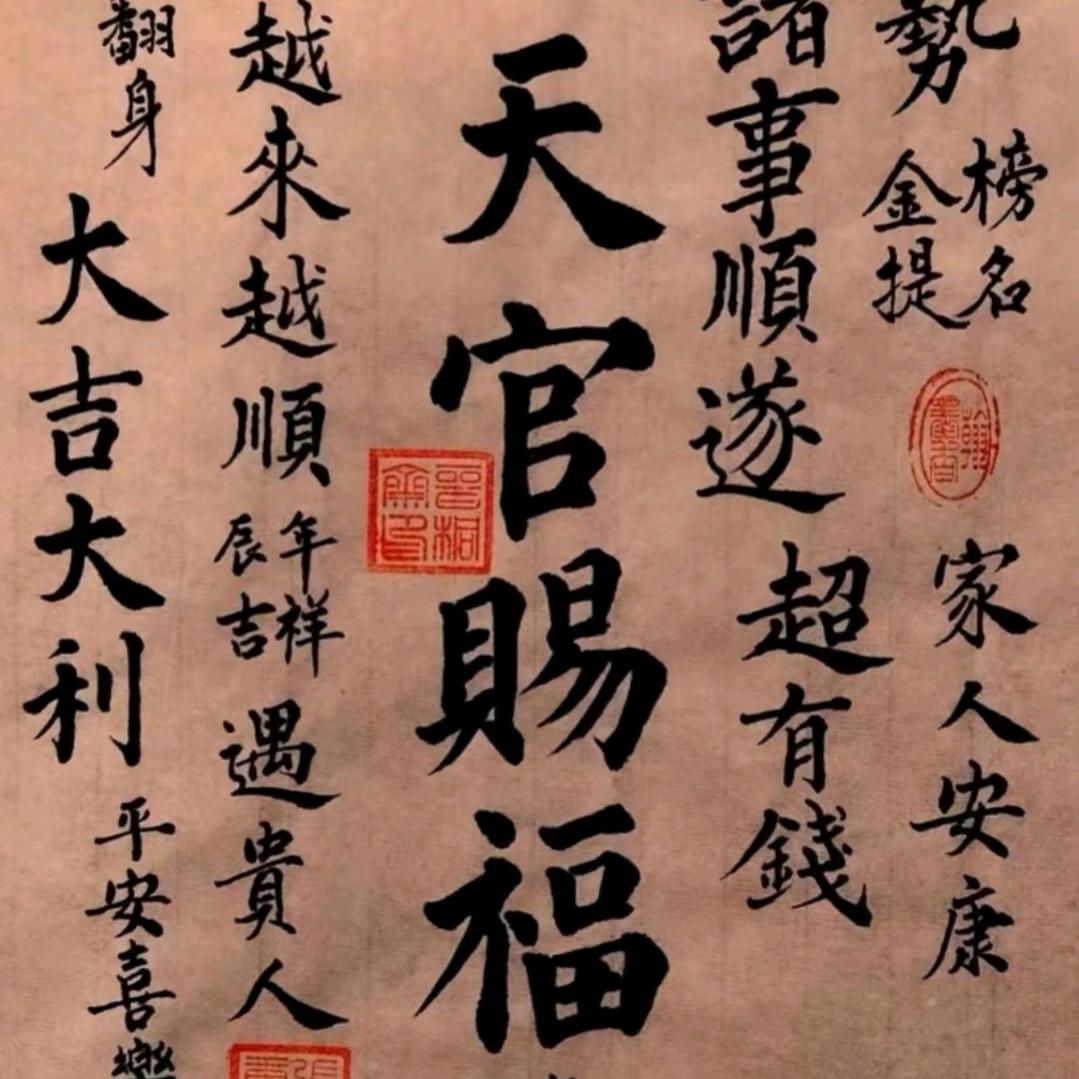 勢
榜名
金提
翰
墨香
家人安康
諸事順遂
超有錢
天官賜福
越來越順
年祥
辰吉
遇貴人
翻身
大吉大利
平安喜樂